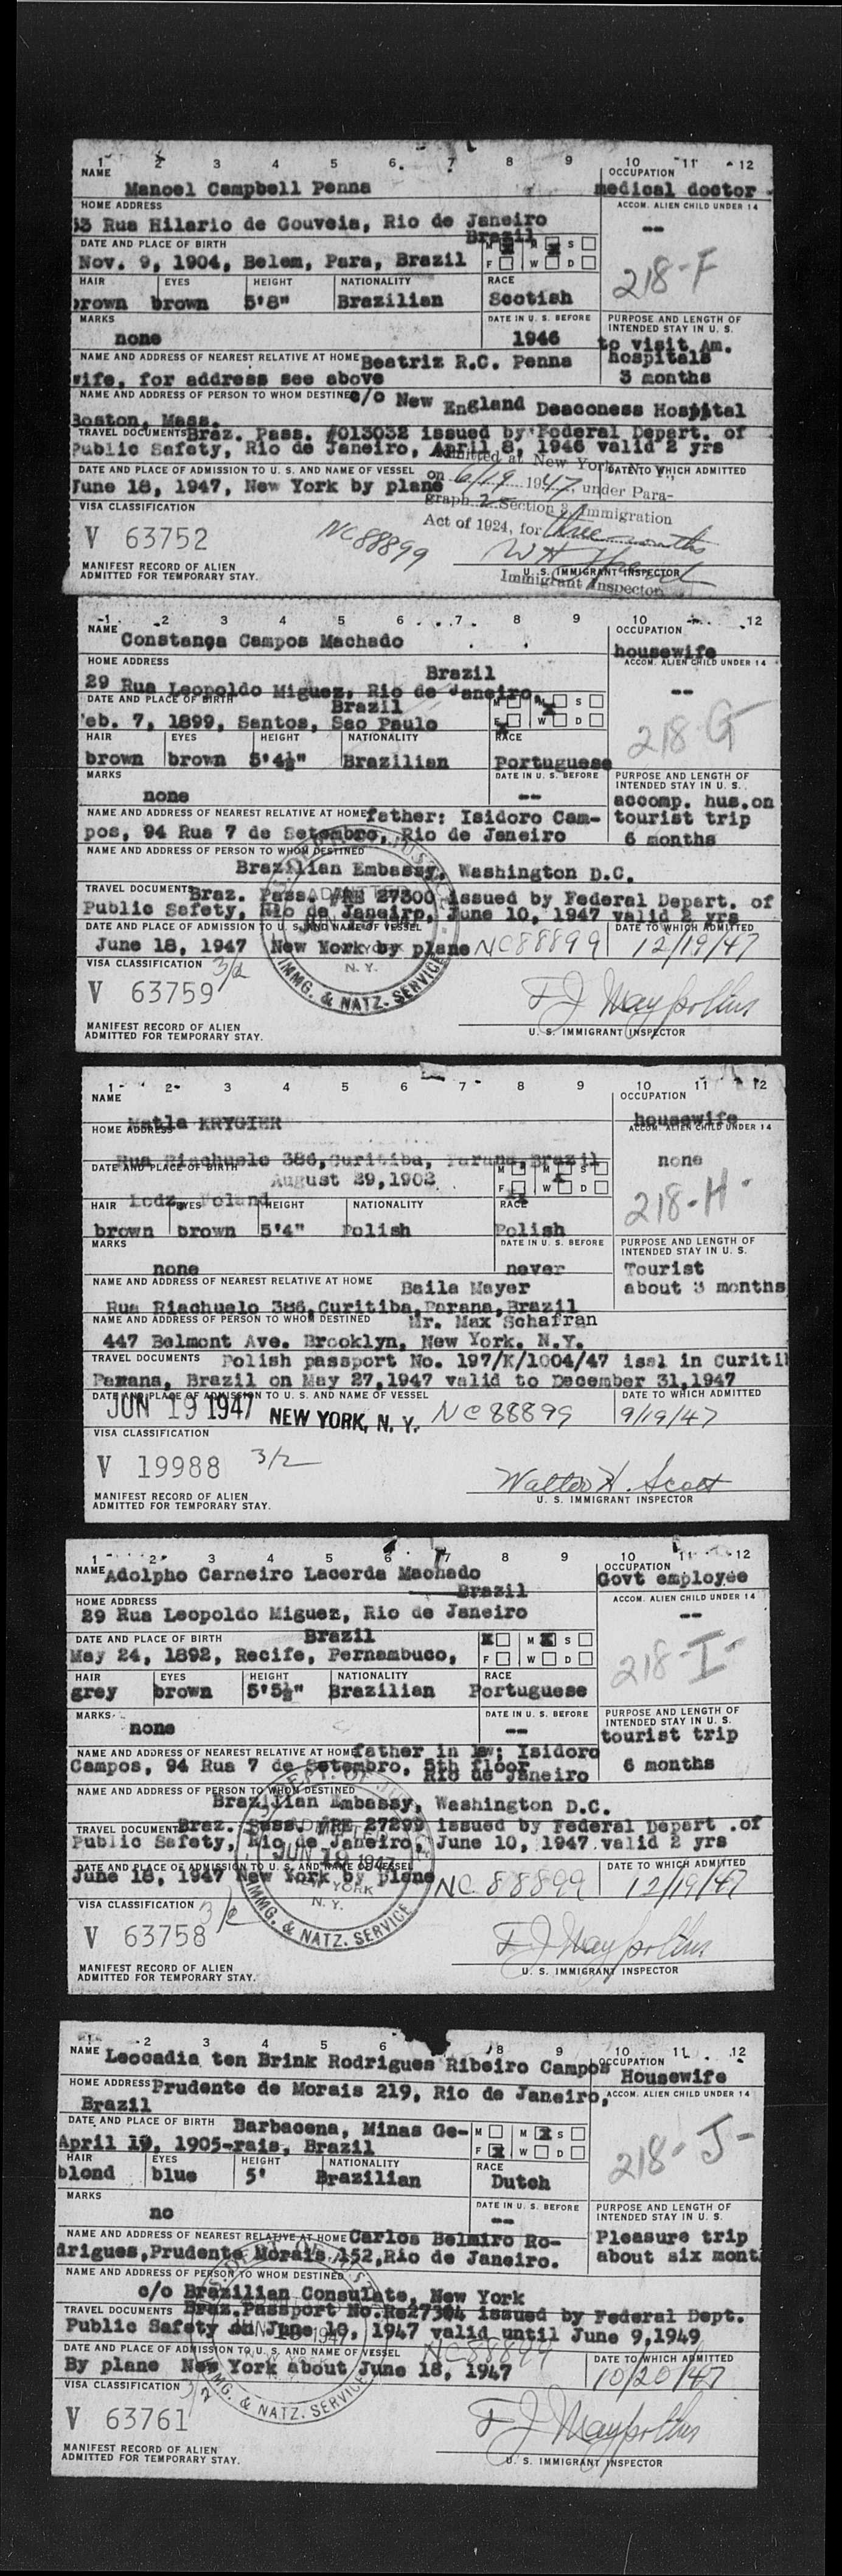 1 2 3 4 5 6 7 8 9 10 11 12
NAME
Manoel Campbell Penna
OCCUPATION
medical doctor
HOME ADDRESS
53 Rua Hilario de Gouveia, Rio de Janeiro
Brazil
ACCOM. ALIEN CHILD UNDER 14
--
DATE AND PLACE OF BIRTH
Nov. 9, 1904, Belem, Para, Brazil
M M S
F W D
218-F
HAIR EYES HEIGHT NATIONALITY RACE
brown brown 5'8" Brazilian Scotish
MARKS
none
DATE IN U. S. BEFORE
1946
PURPOSE AND LENGTH OF INTENDED STAY IN U. S.
to visit Am.
hospitals
3 months
NAME AND ADDRESS OF NEAREST RELATIVE AT HOME Beatriz R.C. Penna
wife, for address see above
NAME AND ADDRESS OF PERSON TO WHOM DESTINED c/o New England Deaconess Hospital
Boston, Mass.
TRAVEL DOCUMENTS Braz. Pass. #013032 issued by Federal Depart. of
Public Safety, Rio de Janeiro, April 8, 1946 valid 2 yrs
DATE AND PLACE OF ADMISSION TO U. S. AND NAME OF VESSEL
DATE TO WHICH ADMITTED
June 18, 1947, New York by plane
Admitted at New York, N. Y.,
on 6/19 1947, under Para-
graph 2 Section 3, Immigration
Act of 1924, for three months
VISA CLASSIFICATION
V 63752
NC88899
U. S. IMMIGRANT INSPECTOR
Immigrant Inspector
MANIFEST RECORD OF ALIEN
ADMITTED FOR TEMPORARY STAY.
1 2 3 4 5 6 7 8 9 10 12
NAME Constança Campos Machado
OCCUPATION
housewife
HOME ADDRESS
Brazil
29 Rua Leopoldo Miguez, Rio de Janeiro,
ACCOM. ALIEN CHILD UNDER 14
--
DATE AND PLACE OF BIRTH
Brazil
Feb. 7, 1899, Santos, Sao Paulo
M M S
F W D
218 G
HAIR EYES HEIGHT NATIONALITY RACE
brown brown 5'4½" Brazilian Portuguese
MARKS
none
DATE IN U. S. BEFORE
--
PURPOSE AND LENGTH OF INTENDED STAY IN U. S.
accomp. hus. on
tourist trip
6 months
NAME AND ADDRESS OF NEAREST RELATIVE AT HOME father: Isidoro Cam-
pos, 94 Rua 7 de Setembro, Rio de Janeiro
NAME AND ADDRESS OF PERSON TO WHOM DESTINED
Brazilian Embassy, Washington D.C.
TRAVEL DOCUMENTS Braz. Pass. #RE 27300 issued by Federal Depart. of
Public Safety, Rio de Janeiro, June 10, 1947 valid 2 yrs
DATE AND PLACE OF ADMISSION TO U. S. AND NAME OF VESSEL
DATE TO WHICH ADMITTED
June 18, 1947 New York by plane NC88899 12/19/47
VISA CLASSIFICATION 3/2
V 63759
N. Y.
IMMG. & NATZ. SERVICE
U. S. IMMIGRANT INSPECTOR
MANIFEST RECORD OF ALIEN
ADMITTED FOR TEMPORARY STAY.
1 2 3 4 5 6 7 8 9 10 11 12
NAME
Matla KRYGIER
OCCUPATION
housewife
HOME ADDRESS
Rua Riachuelo 386, Curitiba, Parana, Brazil
ACCOM. ALIEN CHILD UNDER 14
none
DATE AND PLACE OF BIRTH
August 29, 1902
Lodz, Poland
M M S
F W D
218-H-
HAIR EYES HEIGHT NATIONALITY RACE
brown brown 5'4" Polish Polish
MARKS
none
DATE IN U. S. BEFORE
never
PURPOSE AND LENGTH OF INTENDED STAY IN U. S.
Tourist
about 3 months
NAME AND ADDRESS OF NEAREST RELATIVE AT HOME Baila Mayer
Rua Riachuelo 386, Curitiba, Parana, Brazil
NAME AND ADDRESS OF PERSON TO WHOM DESTINED Mr. Max Schafran
447 Belmont Ave. Brooklyn, New York. N.Y.
TRAVEL DOCUMENTS Polish passport No. 197/K/1004/47 issl in Curitil
Parana, Brazil on May 27, 1947 valid to December 31, 1947
DATE AND PLACE OF ADMISSION TO U. S. AND NAME OF VESSEL
DATE TO WHICH ADMITTED
JUN 19 1947 NEW YORK, N. Y. NC 88899 9/19/47
VISA CLASSIFICATION
V 19988 3/2
Walter H. Scott
U. S. IMMIGRANT INSPECTOR
MANIFEST RECORD OF ALIEN
ADMITTED FOR TEMPORARY STAY.
1 2 3 4 5 6 7 8 9 10 11 12
NAME Adolpho Carneiro Lacerda Machado
OCCUPATION
Govt employee
HOME ADDRESS
Brazil
29 Rua Leopoldo Miguez, Rio de Janeiro
ACCOM. ALIEN CHILD UNDER 14
--
DATE AND PLACE OF BIRTH
Brazil
May 24, 1892, Recife, Pernambuco,
M M S
F W D
218-I-
HAIR EYES HEIGHT NATIONALITY RACE
grey brown 5'5½" Brazilian Portuguese
MARKS
none
DATE IN U. S. BEFORE
--
PURPOSE AND LENGTH OF INTENDED STAY IN U. S.
tourist trip
6 months
NAME AND ADDRESS OF NEAREST RELATIVE AT HOME father in lw; Isidoro
Campos, 94 Rua 7 de Setembro, 5th floor
Rio de Janeiro
NAME AND ADDRESS OF PERSON TO WHOM DESTINED
Brazilian Embassy, Washington D.C.
TRAVEL DOCUMENTS Braz. Pass. #RE 27299 issued by Federal Depart .of
Public Safety, Rio de Janeiro, June 10, 1947 valid 2 yrs
JUN 19 1947
DATE AND PLACE OF ADMISSION TO U. S. AND NAME OF VESSEL
DATE TO WHICH ADMITTED
June 18, 1947 New York by plane NC 88899 12/19/47
NEW YORK
N. Y.
IMMG. & NATZ. SERVICE
VISA CLASSIFICATION 3/2
V 63758
U. S. IMMIGRANT INSPECTOR
MANIFEST RECORD OF ALIEN
ADMITTED FOR TEMPORARY STAY.
1 2 3 4 5 6 8 9 10 11 12
NAME Leocadia ten Brink Rodrigues Ribeiro Campos
OCCUPATION
Housewife
HOME ADDRESS Prudente de Morais 219, Rio de Janeiro,
Brazil
ACCOM. ALIEN CHILD UNDER 14
DATE AND PLACE OF BIRTH Barbacena, Minas Ge-
April 19, 1905-rais, Brazil
M M S
F W D
218-J-
HAIR EYES HEIGHT NATIONALITY RACE
blond blue 5' Brazilian Dutch
MARKS
no
DATE IN U. S. BEFORE
--
PURPOSE AND LENGTH OF INTENDED STAY IN U. S.
Pleasure trip
about six mont
NAME AND ADDRESS OF NEAREST RELATIVE AT HOME Carlos Belmiro Ro-
drigues, Prudente Morais 152, Rio de Janeiro.
NAME AND ADDRESS OF PERSON TO WHOM DESTINED
c/o Brazilian Consulate, New York
TRAVEL DOCUMENTS Braz. Passport No. Re27304 issued by Federal Dept.
Public Safety on June 10, 1947 valid until June 9, 1949
DATE AND PLACE OF ADMISSION TO U. S. AND NAME OF VESSEL NC88899
DATE TO WHICH ADMITTED
By plane New York about June 18, 1947 10/20/47
VISA CLASSIFICATION 3/2
V 63761
IMMG. & NATZ. SERVICE
U. S. IMMIGRANT INSPECTOR
MANIFEST RECORD OF ALIEN
ADMITTED FOR TEMPORARY STAY.